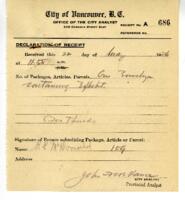 City of Vancouver, B.C.
OFFICE OF THE CITY ANALYST
RECEIPT No. A 686
REFERENCE No.
DECLARATION OF RECEIPT
Received this 22 day of
at 11.50
No. of Packages, Articles, Parcels. One Envelope
containing
Signature of Person submitting Package, Article or Parcel:
McDonald 159
John F.C.B. Vance
CITY ANALYST
Provincial Analyst